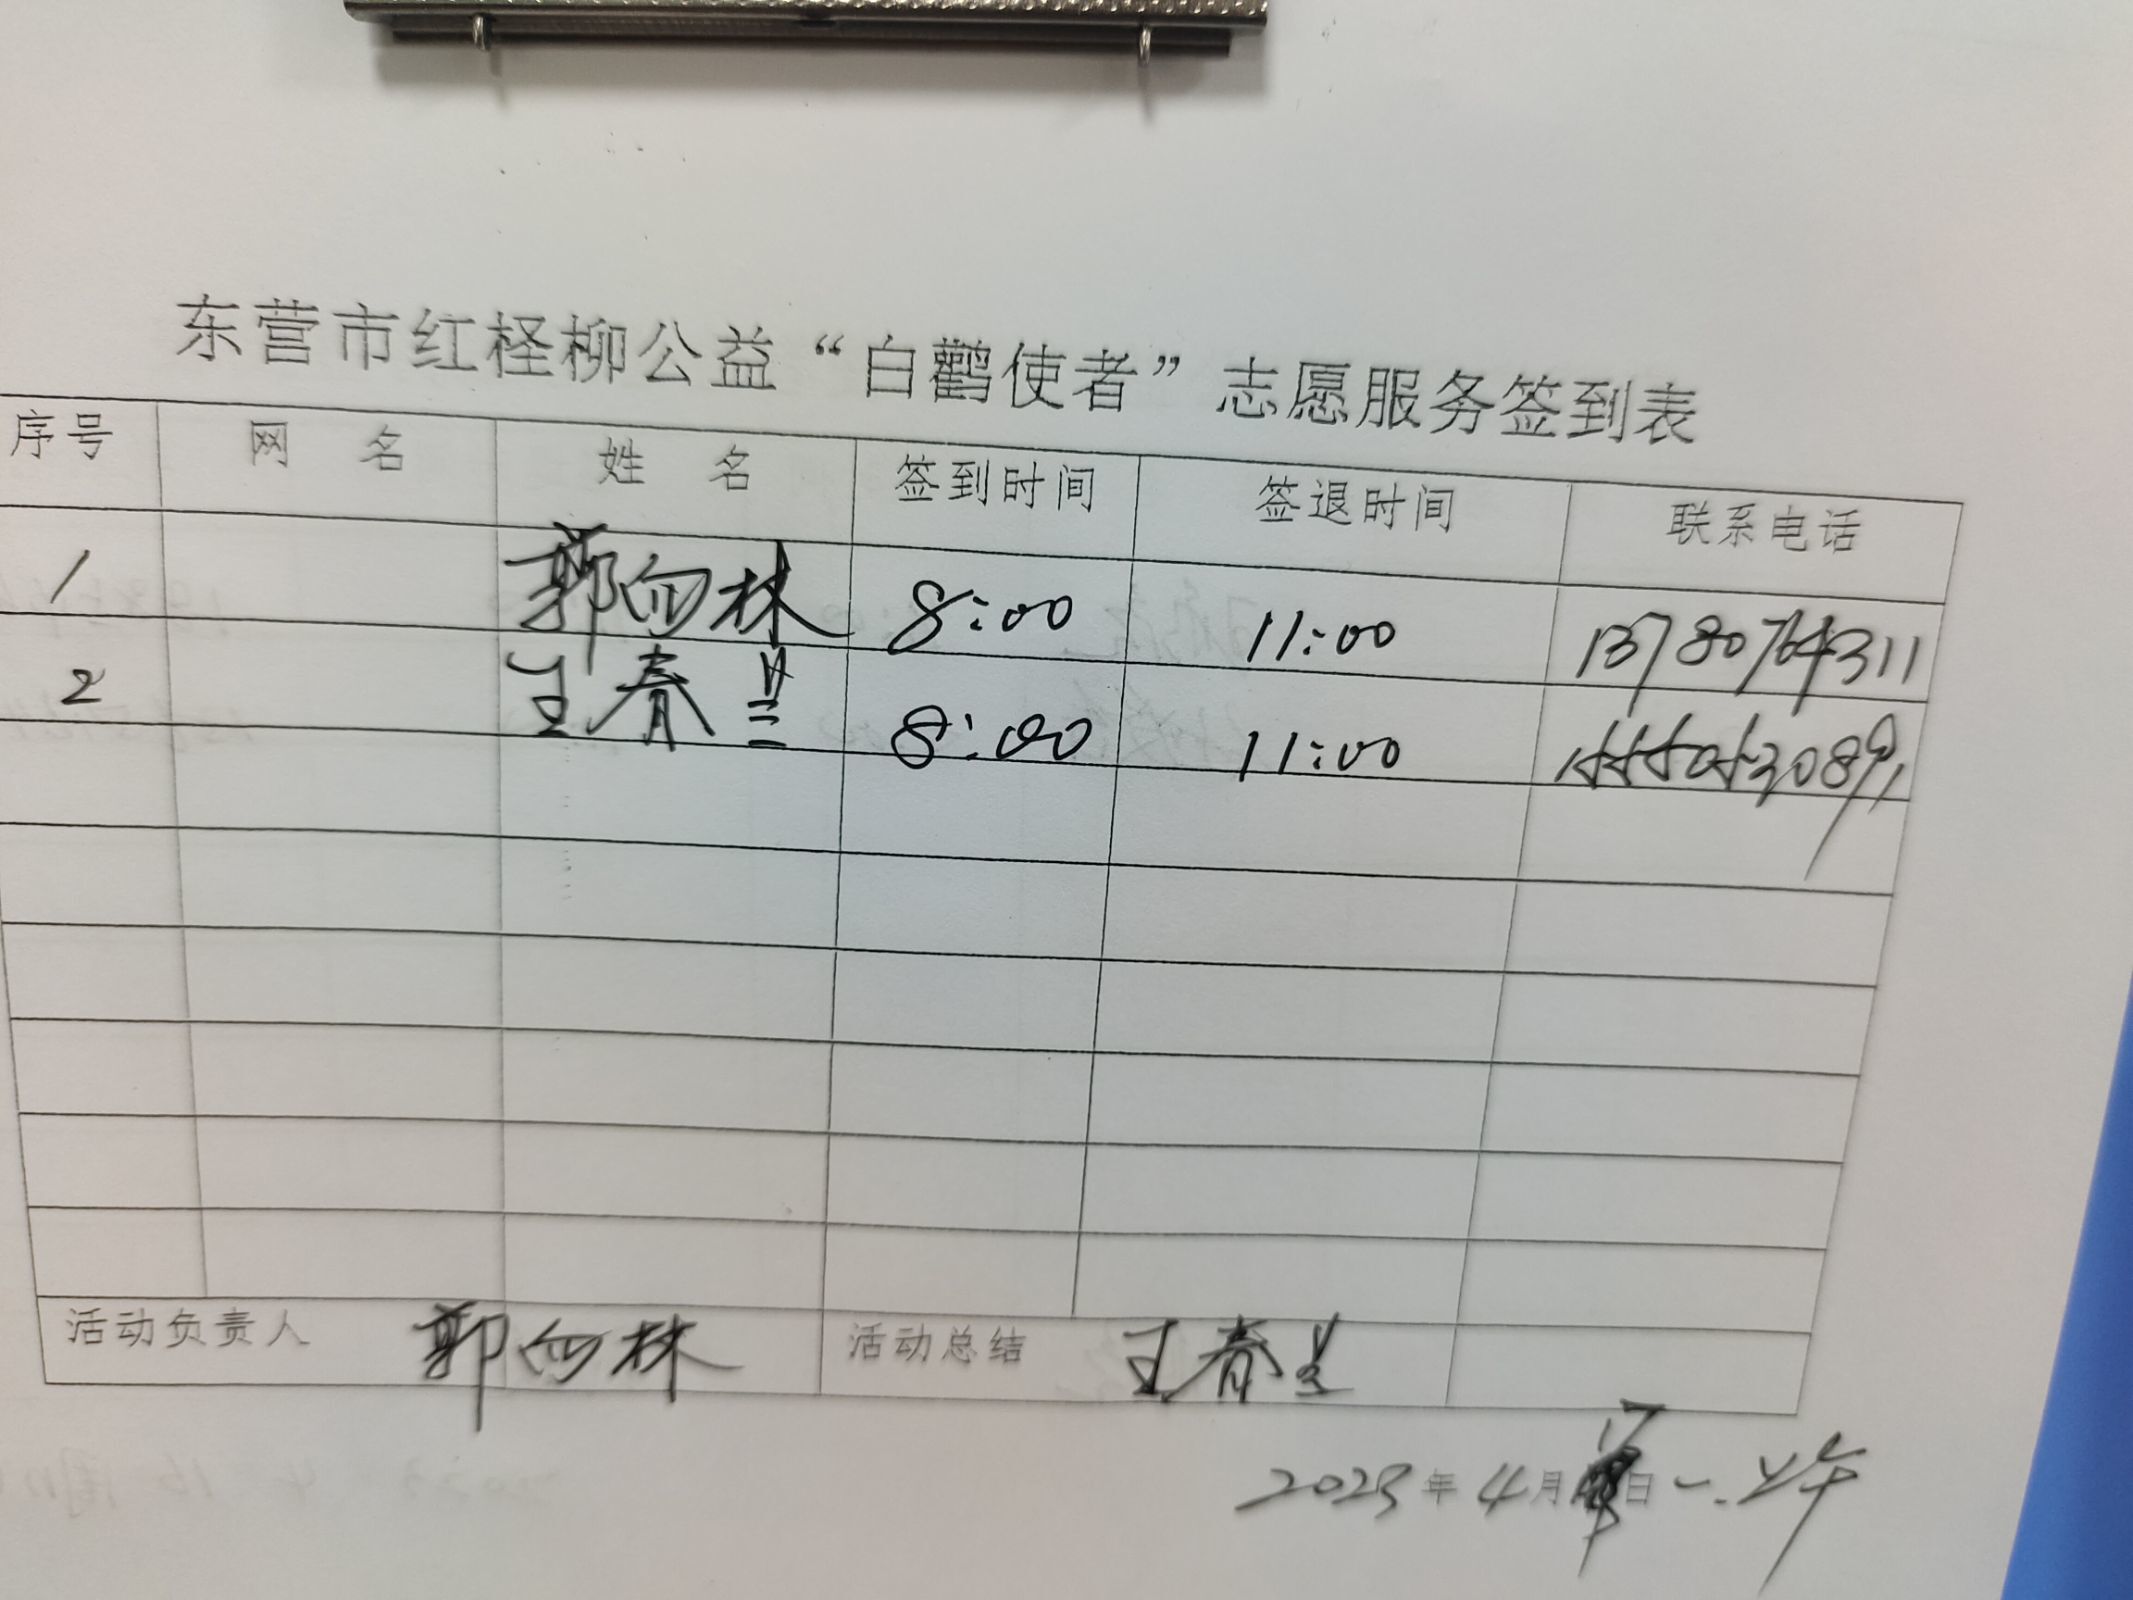 东营市红柽柳公益“白鹳使者”志愿服务签到表
序号 网 名 姓 名 签到时间 签退时间 联系电话
1 郭向林 8:00 11:00 13780764311
2 王春兰 8:00 11:00
活动负责人 郭向林 活动总结 王春兰
2023年4月17日 一.上午